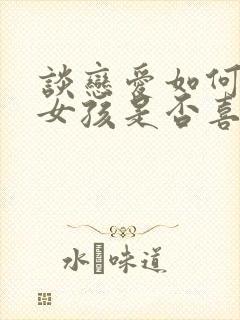 談戀愛如何
女孩是否喜
水 味道